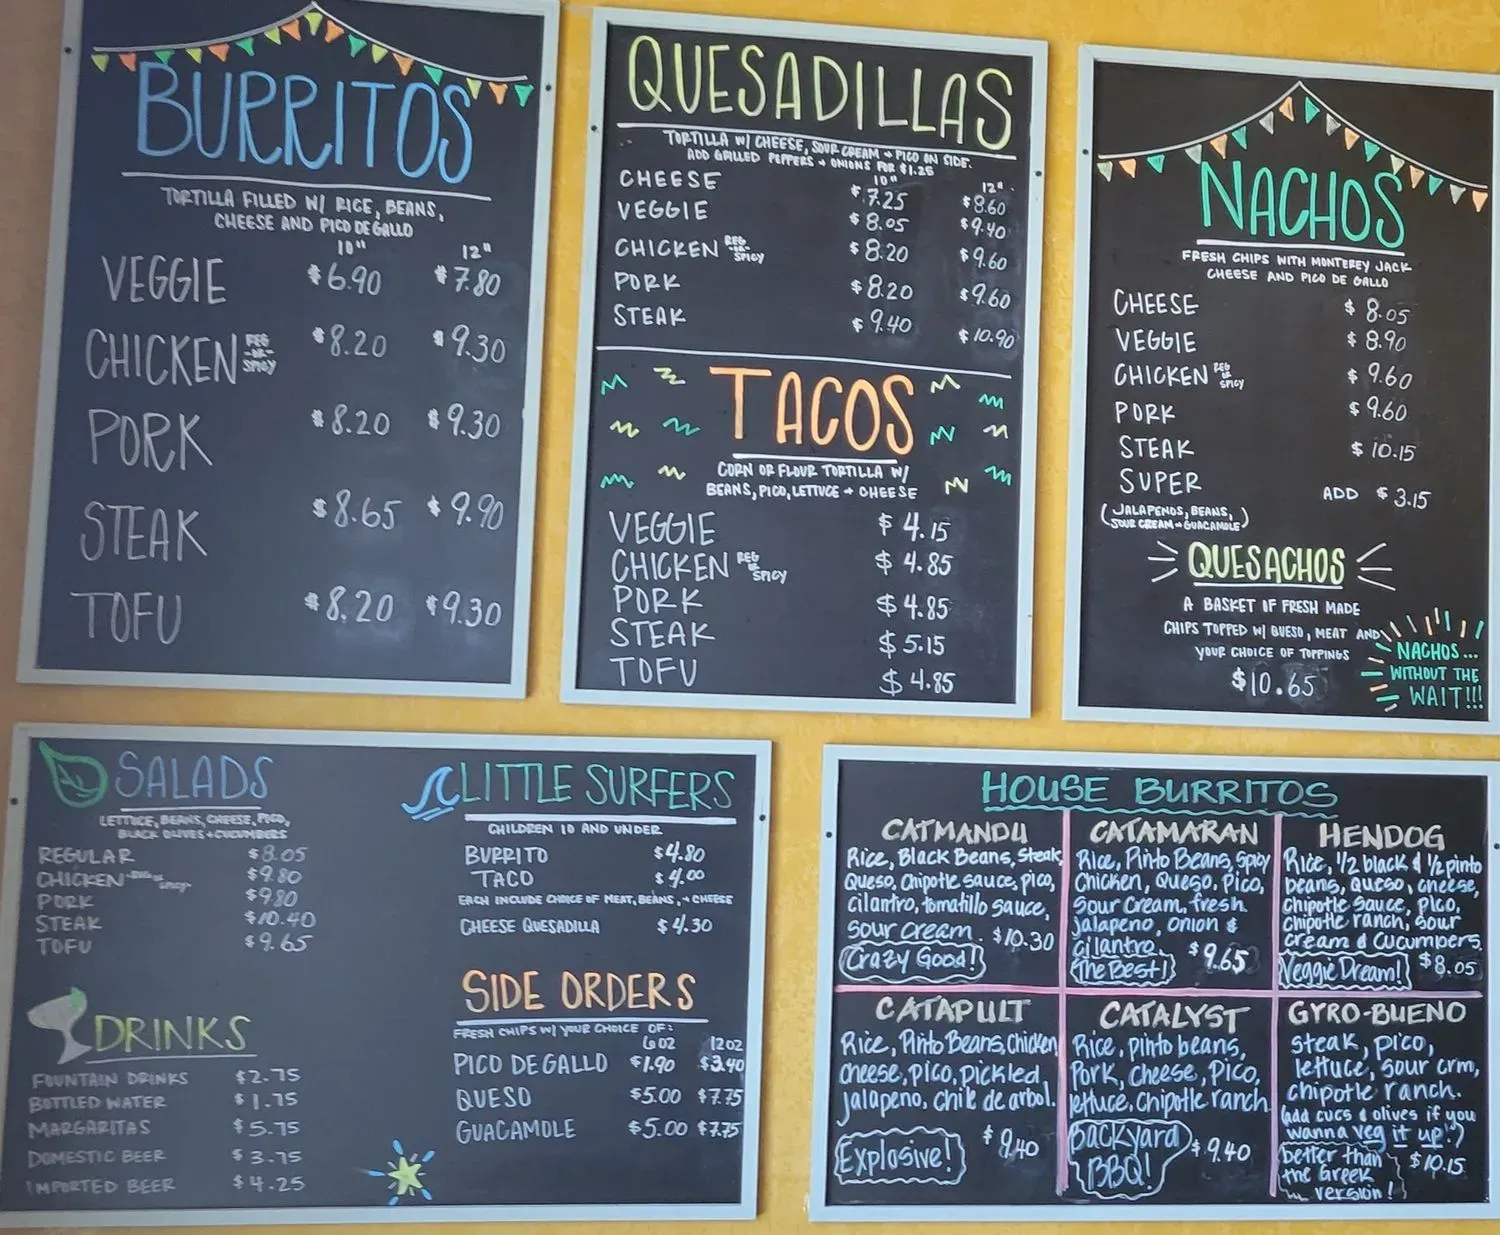 BURRITOS
TORTILLA FILLED W/ RICE, BEANS,
CHEESE AND PICO DE GALLO
10" 12"
VEGGIE $6.90 $7.80
CHICKEN REG -OR- SPICY $8.20 $9.30
PORK $8.20 $9.30
STEAK $8.65 $9.90
TOFU $8.20 $9.30
QUESADILLAS
TORTILLA W/ CHEESE, SOUR CREAM + PICO ON SIDE.
ADD GRILLED PEPPERS + ONIONS FOR $1.25
10" 12"
CHEESE $7.25 $8.60
VEGGIE $8.05 $9.40
CHICKEN REG -OR- SPICY $8.20 $9.60
PORK $8.20 $9.60
STEAK $9.40 $10.90
TACOS
CORN OR FLOUR TORTILLA W/
BEANS, PICO, LETTUCE + CHEESE
VEGGIE $4.15
CHICKEN REG OR SPICY $4.85
PORK $4.85
STEAK $5.15
TOFU $4.85
NACHOS
FRESH CHIPS WITH MONTEREY JACK
CHEESE AND PICO DE GALLO
CHEESE $8.05
VEGGIE $8.90
CHICKEN REG OR SPICY $9.60
PORK $9.60
STEAK $10.15
SUPER ADD $3.15
(JALAPENOS, BEANS,
SOUR CREAM + GUACAMOLE)
QUESACHOS
A BASKET IF FRESH MADE
CHIPS TOPPED W/ QUESO, MEAT AND
YOUR CHOICE OF TOPPINGS
$10.65
NACHOS...
WITHOUT THE
WAIT!!!
SALADS
LETTUCE, BEANS, CHEESE, PICO,
BLACK OLIVES + CUCUMBERS
REGULAR $8.05
CHICKEN REG OR SPICY $9.80
PORK $9.80
STEAK $10.40
TOFU $9.65
DRINKS
FOUNTAIN DRINKS $2.75
BOTTLED WATER $1.75
MARGARITAS $5.75
DOMESTIC BEER $3.75
IMPORTED BEER $4.25
LITTLE SURFERS
CHILDREN 10 AND UNDER
BURRITO $4.80
TACO $4.00
EACH INCLUDE CHOICE OF MEAT, BEANS, + CHEESE
CHEESE QUESADILLA $4.30
SIDE ORDERS
FRESH CHIPS W/ YOUR CHOICE OF:
6 OZ 12 OZ
PICO DE GALLO $1.90 $3.40
QUESO $5.00 $7.75
GUACAMOLE $5.00 $7.75
HOUSE BURRITOS
CATMANDU
Rice, Black Beans, Steak,
Queso, Chipotle sauce, pico,
cilantro, tomatillo sauce,
sour cream. $10.30
Crazy Good!
CATAMARAN
Rice, Pinto Beans, Spicy
Chicken, Queso, Pico,
Sour Cream, fresh
jalapeno, onion &
cilantro. $9.65
The Best!
HENDOG
Rice, 1/2 black & 1/2 pinto
beans, queso, cheese,
chipotle sauce, pico,
chipotle ranch, sour
cream & cucumbers.
Veggie Dream! $8.05
CATAPULT
Rice, Pinto Beans, Chicken,
cheese, pico, pickled
jalapeno, chile de arbol.
$9.40
Explosive!
CATALYST
Rice, pinto beans,
Pork, Cheese, Pico,
lettuce, chipotle ranch
Backyard
BBQ! $9.40
GYRO-BUENO
steak, pico,
lettuce, sour crm,
chipotle ranch.
(add cucs & olives if you
wanna veg it up!)
better than
the Greek
version! $10.15